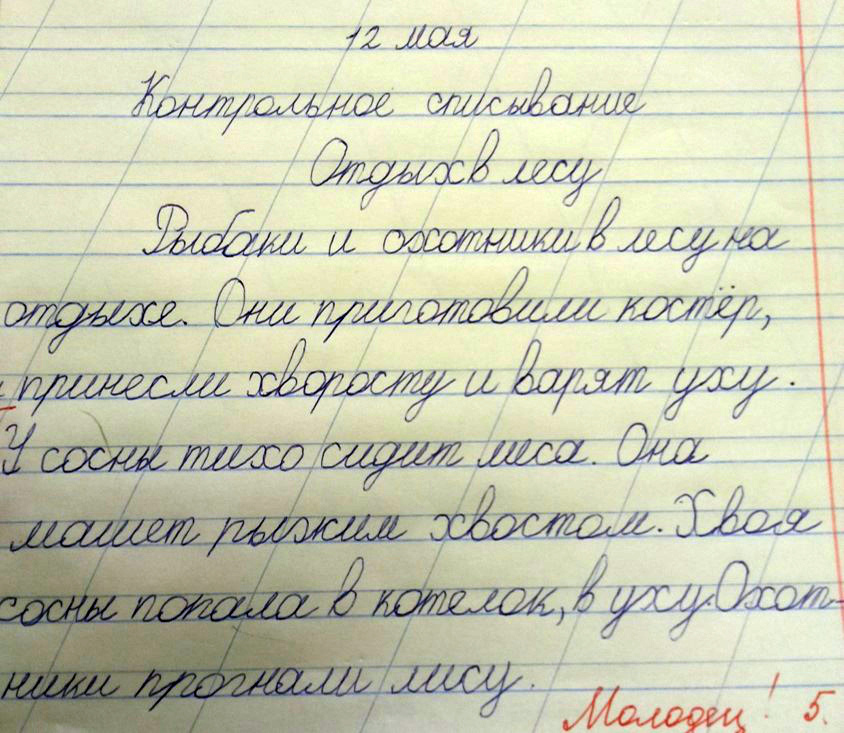 12 мая
Контрольное списывание
Отдых в лесу
Рыбаки и охотники в лесу на
отдыхе. Они приготовили костёр,
принесли хворосту и варят уху.
У сосны тихо сидит лиса. Она
машет рыжим хвостом. Хвоя
сосны попала в котелок, в уху. Охот-
ники прогнали лису.
Молодец! 5.